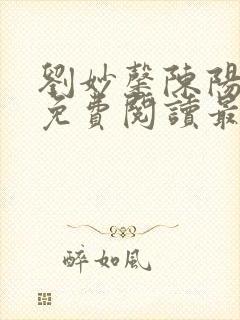 劉妙馨陳陽
免費閱讀最
醉如風